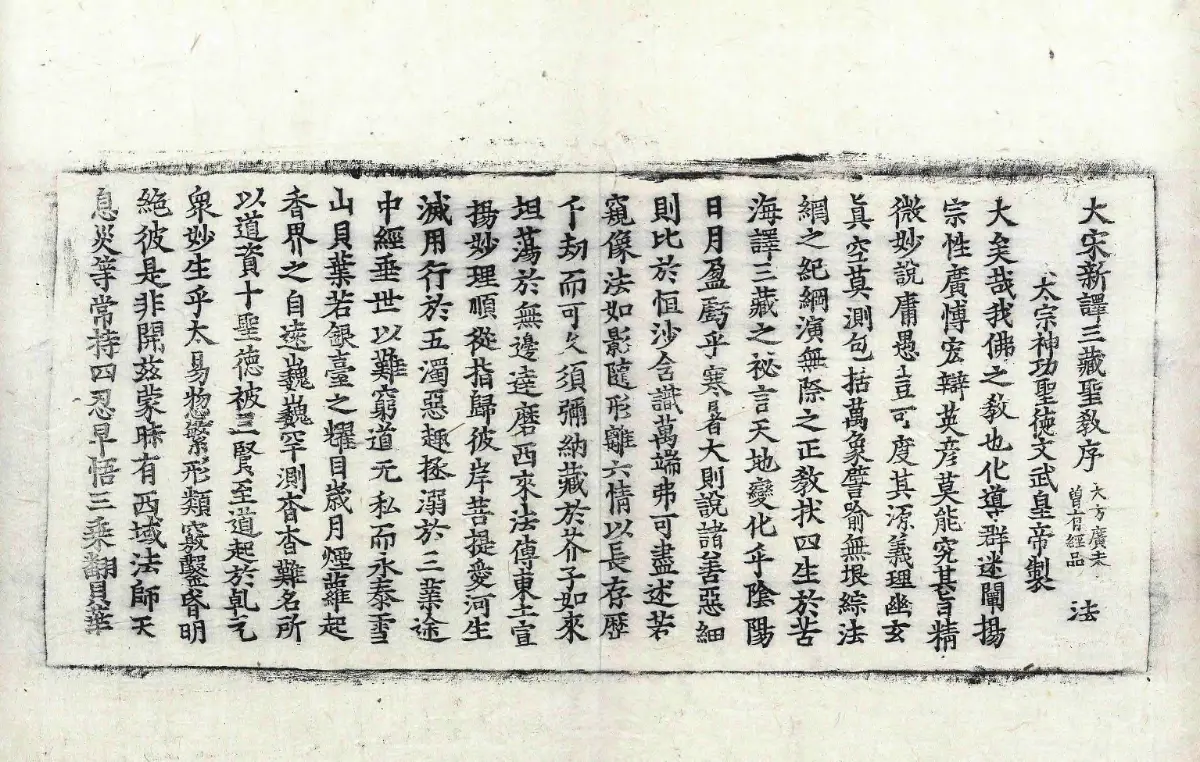 大宋新譯三藏聖教序 大方廣未曾有經品 法
太宗神功聖德文武皇帝製
大矣哉我佛之教也化導群迷闡揚
宗性廣博宏辯英彦莫能究其旨精
微妙說庸愚豈可度其源義理幽玄
真空莫測包括萬象譬喻無垠綜法
網之紀綱演無際之正教拔四生於苦
海譯三藏之祕言天地變化乎陰陽
日月盈虧乎寒暑大則說諸善惡細
則比於恒沙含識萬端弗可盡述若
窺像法如影隨形離六情以長存歷
千劫而可久須彌納藏於芥子如來
坦蕩於無邊達磨西來法傳東土宣
揚妙理順從指歸彼岸菩提愛河生
滅用行於五濁惡趣拯溺於三業途
中經垂世以難窮道无私而永泰雪
山貝葉若銀臺之耀目歲月煙蘿起
香界之自遠巍巍罕測杳杳難名所
以道資十聖德被三賢至道起於乹元
衆妙生乎太易惣繁形類竅鑿昏明
絶彼是非開兹蒙昧有西域法師天
息災等常持四忍早悟三乘翻貝葉